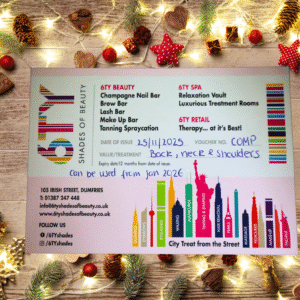 6TY
SHADES OF BEAUTY
6TY BEAUTY
Champagne Nail Bar
Brow Bar
Lash Bar
Make Up Bar
Tanning Spraycation
6TY SPA
Relaxation Vault
Luxurious Treatment Rooms
6TY RETAIL
Therapy... at it's Best!
DATE OF ISSUE 25/11/2025 VOUCHER NO. COMP
VALUE/TREATMENT Back, neck & Shoulders
Expiry date12 months from date of issue.
Can be used from Jan 2026
103 IRISH STREET, DUMFRIES
T: 01387 247 448
info@6tyshadesofbeauty.co.uk
www.6tyshadesofbeauty.co.uk
FOLLOW US
/6TYshades
/6TYshades
City Treat from the Street